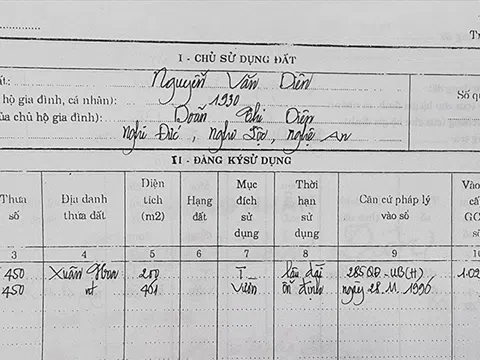 I - CHỦ SỬ DỤNG ĐẤT
Nguyễn Văn Diên
hộ gia đình, cá nhân): 1930
Số qu
của chủ hộ gia đình): Doãn Thị Diệp
Nghi Đức, Nghi Lộc, Nghệ An
II - ĐĂNG KÝ SỬ DỤNG
Thửa số
Địa danh thửa đất
Diện tích (m2)
Hạng đất
Mục đích sử dụng
Thời hạn sử dụng
Căn cứ pháp lý vào sổ
3 4 5 6 7 8 9 10
450 Xuân 200 T lâu dài 285QĐ-UB(H) 1.02
450 nt 401 Vườn ổn định ngày 28.11.1996